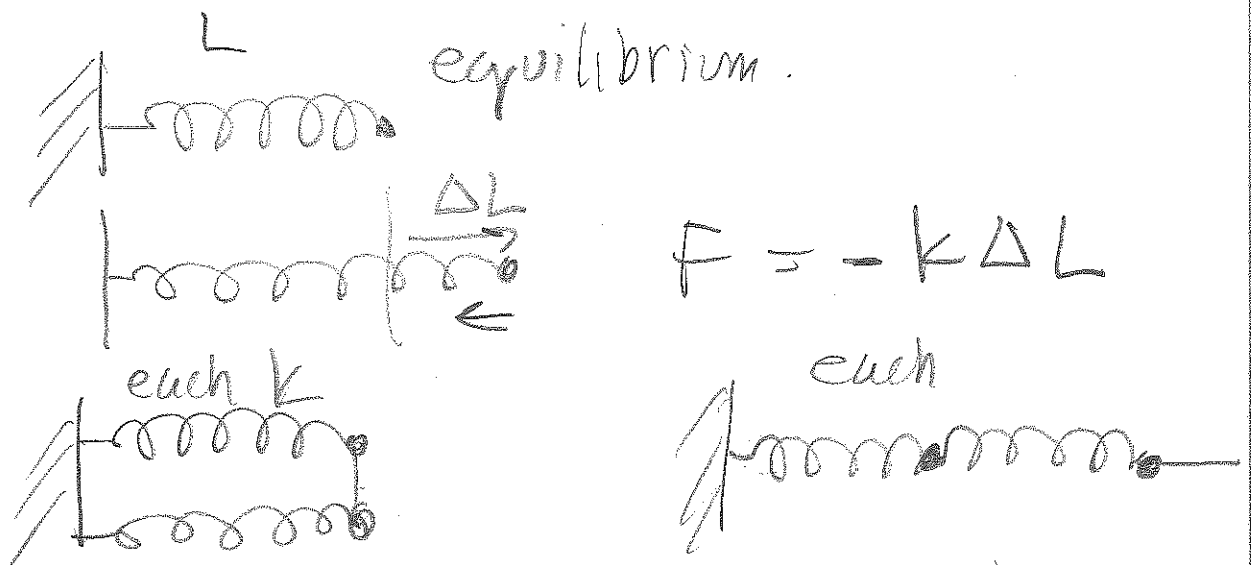 L
equilibrium.
ΔL
F = - k Δ L
each k
each